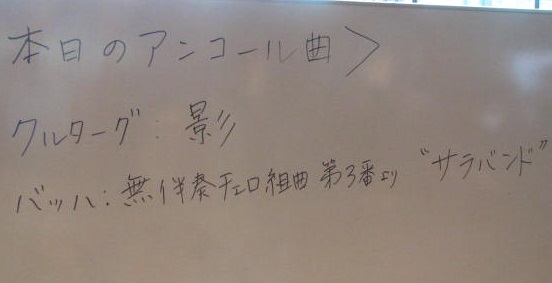 本日のアンコール曲>
クルターグ: 影
バッハ: 無伴奏チェロ組曲 第3番より "サラバンド"